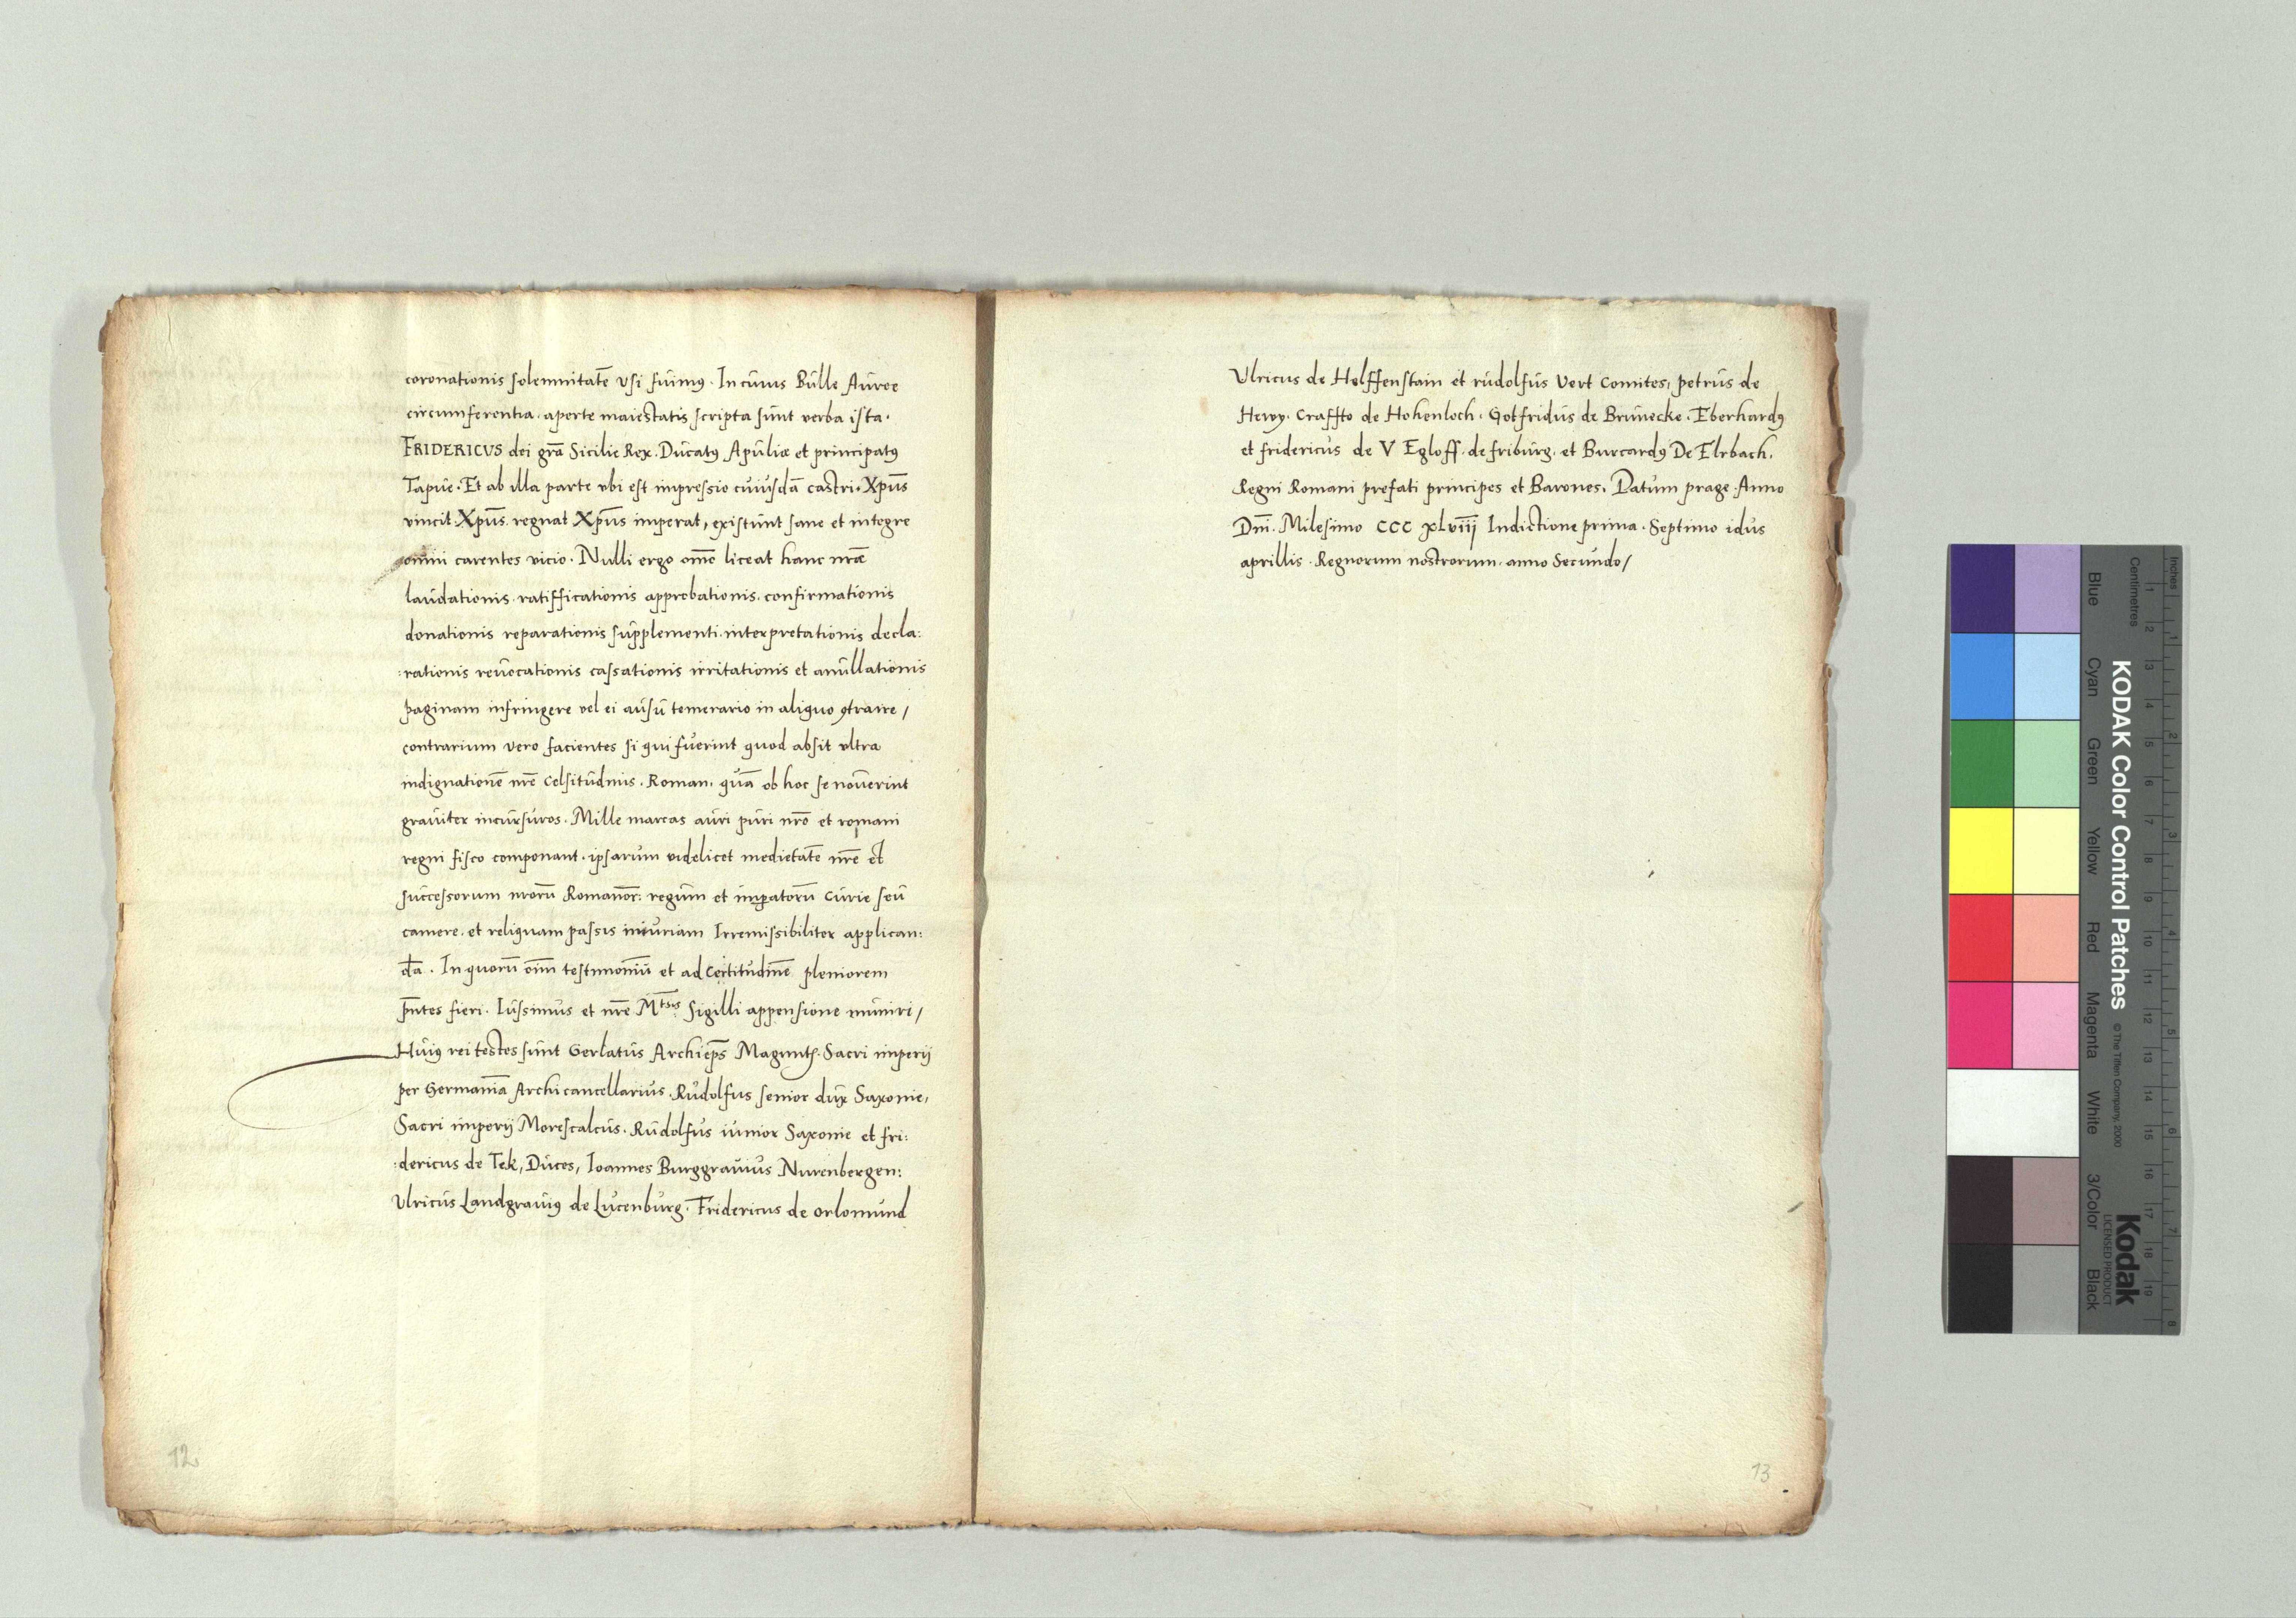 coronationis solemnitatē vsi fuimꝰ. In cuius Bulle Auree
circumferentia. aperte maiestatis scripta sunt verba ista.
FRIDERICVS dei grā Sicilie Rex. Ducatꝰ Apuliæ et principatꝰ
Tapue. Et ab illa parte vbi est impressio cuiusdā castri. Xpūs
vincit. Xpūs. regnat Xpūs imperat, existunt sane et integre
omni carentes vicio. Nulli ergo om̄e liceat hanc nrāe
laudationis. ratifficationis approbationis. confirmationis
donationis reparationis supplementi. interpretationis decla:
:rationis reuocationis cassationis irritationis et anullationis
paginam infringere vel ei ausu temerario in aliquo ꝯtraire/
contrarium vero facientes si qui fuerint quod absit vltra
indignationē nrē celsitudinis. Roman. quā ob hoc se nouerint
grauiter incursuros. Mille marcas auri puri nrō et romani
regni fisco componant. ipsarum videlicet medietatē nrē et
successorum nrorū Romanor: regum et imꝑatorū curie seu
camere. et reliquam passis iniuriam Irremissibiliter applican:
da. In quorū oīm testimoniū et ad certitudinē pleniorem
pn̄tes fieri. Iussimus et nrē Mᵗˢⁱˢ Sigilli appensione muniri/
Huiꝰ rei testes sunt Gerlatus Archiep̄s Magunt. Sacri imperij
per Germaniā Archicancellarius. Rudolfus senior dux Saxonie,
Sacri imperij Morescalcus. Rudolfus iunior Saxonie et fri:
:dericus de Tek, Duces, Ioannes Burggrauius Nurenbergen:
Vlricus Landgrauiꝰ de Lucenburg. Fridericus de orlomund
12
Vlricus de Helffenstain et rudolfus Vert Comites, petrus de
Hewy. Craffto de Hohenloch. Gotfridus de Brunecke. Eberhardꝰ
et fridericus de V Egloff. de friburg. et Burcardꝰ De Elrbach.
Regni Romani prefati principes et Barones. Datum prage. Anno
Dn̄i. Milesimo CCC xlviij Indictione prima. Septimo idus
aprillis. Regnorum nostrorum. anno Secundo/
13
KODAK Color Control Patches
© The Tiffen Company, 2000
Kodak
LICENSED PRODUCT
Inches
Centimetres
Blue
Cyan
Green
Yellow
Red
Magenta
White
3/Color
Black
1 2 3 4 5 6 7 8
1 2 3 4 5 6 7 8 9 10 11 12 13 14 15 16 17 18 19